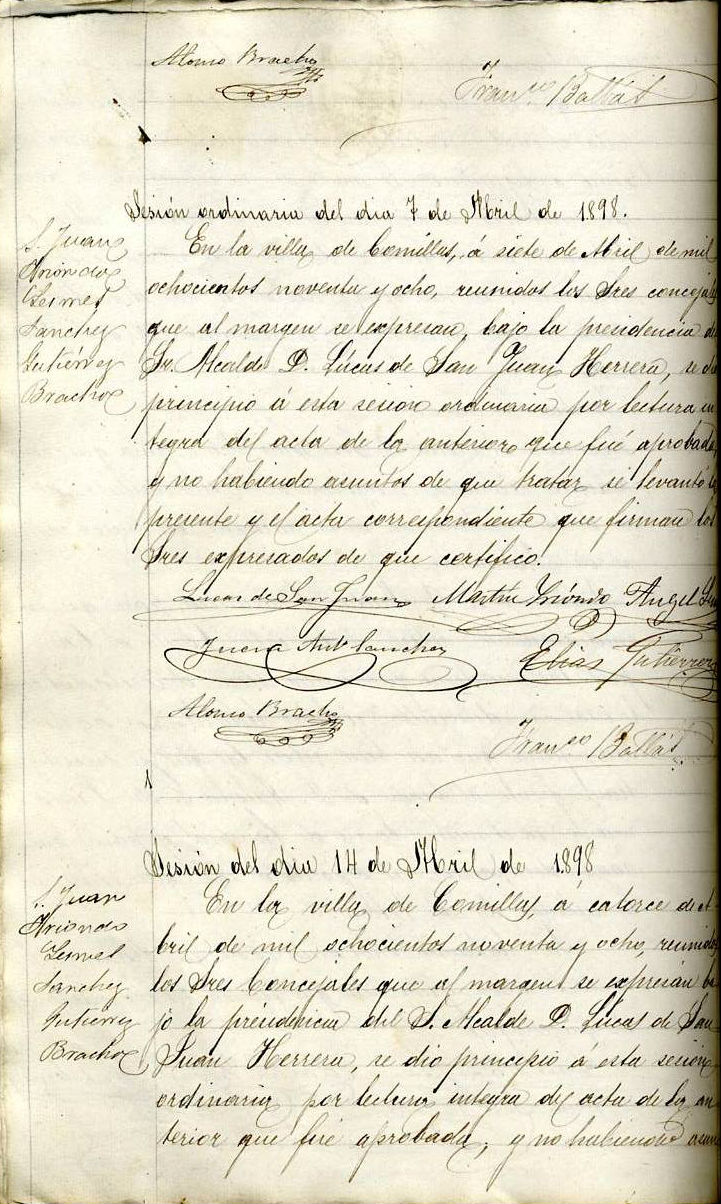 Alonso Bracho
Fran.co Ballás
Sesión ordinaria del dia 7 de Abril de 1898.
S. Juan
Oriondo
Sanchez
Gutiérrez
Bracho
En la villa de Comillas, á siete de Abril de mil
ochocientos noventa y ocho, reunidos los Sres concejal
que al margen se expresan, bajo la presidencia d
Sr. Alcalde D. Lúcas de San Juan Herrera, se di
principio á esta sesion ordinaria por lectura in
tegra del acta de la anterior que fué aprobada
y no habiendo asuntos de que tratar se levantó l
presente y el acta correspondiente que firman los
Sres expresados de que certifico.
Lucas de San Juan Martin Orióndo Angel
Ant.o Sanchez Elias Gutierrez
Alonso Bracho
Fran.co Ballás
Sesión del dia 14 de Abril de 1898
S. Juan
Oriondo
Sanchez
Gutierrez
Bracho
En la villa de Comillas, á catorce de A
bril de mil ochocientos noventa y ocho, reunidos
los Sres Concejales que al margen se expresán ba
jo la presidencia del S. Alcalde D. Lucas de San
Juan Herrera, se dio principio á esta sesión
ordinaria por lectura integra del acta de la an
terior que fué aprobada; y no habiendo asun